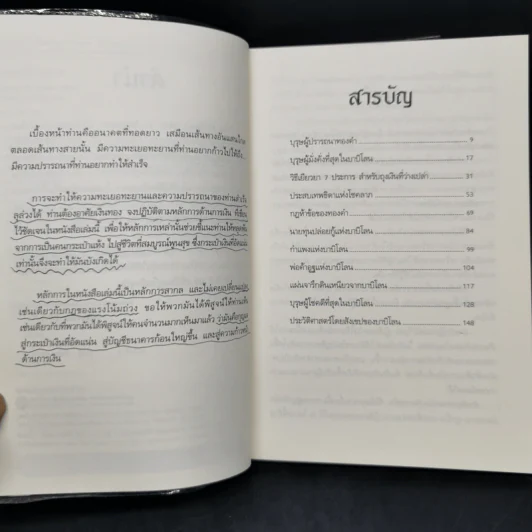 เบื้องหน้าท่านคืออนาคตที่ทอดยาว เสมือนเส้นทางอันแสนไกล
ตลอดเส้นทางสายนั้น มีความทะเยอทะยานที่ท่านอยากก้าวไปให้ถึง
มีความปรารถนาที่ท่านอยากทำให้สำเร็จ
การจะทำให้ความทะเยอทะยานและความปรารถนาของท่านสำเร็จ
ลุล่วงได้ ท่านต้องอาศัยเงินทอง จงปฏิบัติตามหลักการด้านการเงิน ที่เขียน
ไว้ชัดเจนในหนังสือเล่มนี้ เพื่อให้หลักการเหล่านั้นช่วยชี้แนะท่านให้หลุดพ้น
จากการเป็นคนกระเป๋าแห้ง ไปสู่ชีวิตที่สมบูรณ์พูนสุข ซึ่งกระเป๋าเงินที่
เท่านั้นจึงจะทำให้มันบังเกิดได้
หลักการในหนังสือเล่มนี้เป็นหลักการสากล และไม่เคยเปลี่ยนแปลง
เช่นเดียวกับกฎของแรงโน้มถ่วง ขอให้พวกมันได้พิสูจน์ให้ท่านเห็น
เช่นเดียวกับที่พวกมันได้พิสูจน์ให้คนจำนวนมากเห็นมาแล้ว ว่ามันคือกุญแจ
สู่กระเป๋าเงินที่อัดแน่น สู่บัญชีธนาคารก้อนใหญ่ขึ้น และสู่ความก้าวหน้า
ด้านการเงิน
สารบัญ
บุรุษผู้ปรารถนาทองคำ 9
บุรุษผู้มั่งคั่งที่สุดในบาบิโลน 17
วิธีเยียวยา 7 ประการ สำหรับถุงเงินที่ว่างเปล่า 31
ประสบเทพธิดาแห่งโชคลาภ 53
กฎห้าข้อของทองคำ 69
นายทุนปล่อยกู้แห่งบาบิโลน 84
กำแพงแห่งบาบิโลน 99
พ่อค้าอูฐแห่งบาบิโลน 104
แผ่นจารึกดินเหนียวจากบาบิโลน 117
บุรุษผู้โชคดีที่สุดในบาบิโลน 128
ประวัติศาสตร์โดยสังเขปของบาบิโลน 148